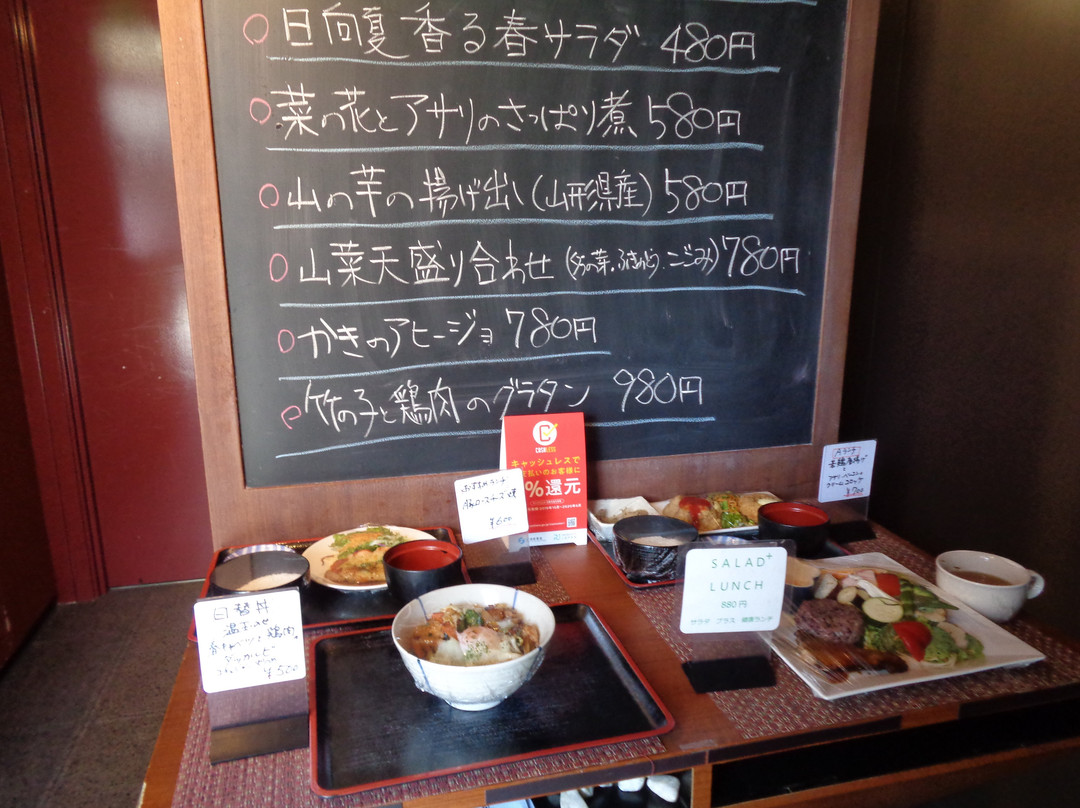 日向夏香る春サラダ 480円
菜の花とアサリのさっぱり煮 580円
山の芋の揚げ出し(山形県産) 580円
山菜天盛り合わせ (タラの芽、ふきのとう、こごみ) 780円
かきのアヒージョ 780円
竹の子と鶏肉のグラタン 980円
CASHLESS
キャッシュレスで
お支払いのお客様に
%還元
おすすめランチ
豚ロースチーズ焼
¥600
Aランチ
唐揚げ
クリームコロッケ
¥700
SALAD+
LUNCH
880円
サラダ プラス 健康ランチ
日替丼
温玉のせ
鶏肉
¥500